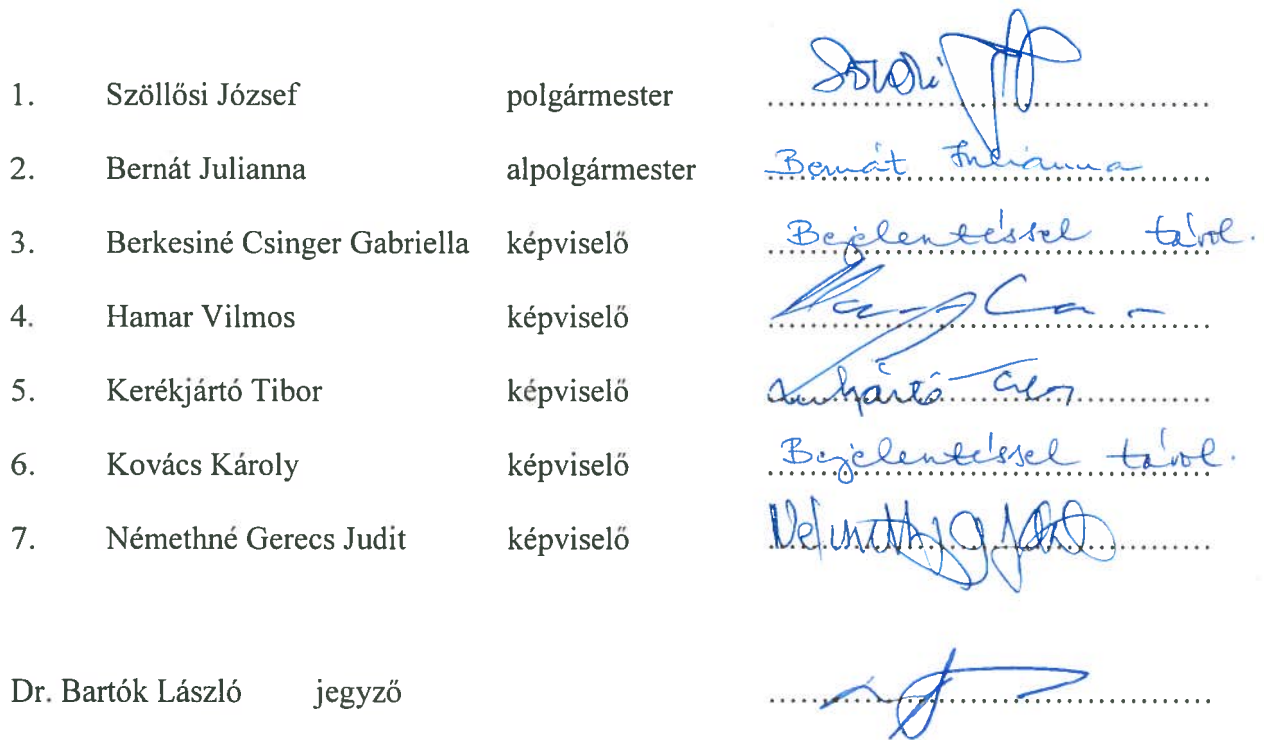 1. Szöllősi József polgármester
2. Bernát Julianna alpolgármester Bernát Julianna
3. Berkesiné Csinger Gabriella képviselő Bejelentéssel távol.
4. Hamar Vilmos képviselő
5. Kerékjártó Tibor képviselő
6. Kovács Károly képviselő Bejelentéssel távol.
7. Némethné Gerecs Judit képviselő
Dr. Bartók László jegyző